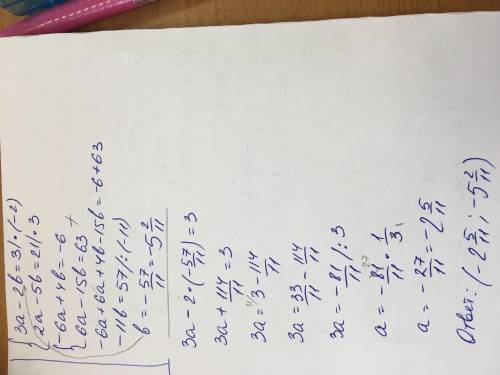 {3a - 2b = 3 | · (-2)
{2a - 5b = 21 | · 3
{-6a + 4b = -6
{6a - 15b = 63 +
-6a + 6a + 4b - 15b = -6 + 63
-11b = 57 / : (-11)
b = -57/11 = -5 2/11
3a - 2 · (-57/11) = 3
3a + 114/11 = 3
3a = 3 - 114/11
3a = 33/11 - 114/11
3a = -81/11 / : 3
a = -81/11 · 1/3
a = -27/11 = -2 5/11
Ответ: (-2 5/11; -5 2/11)